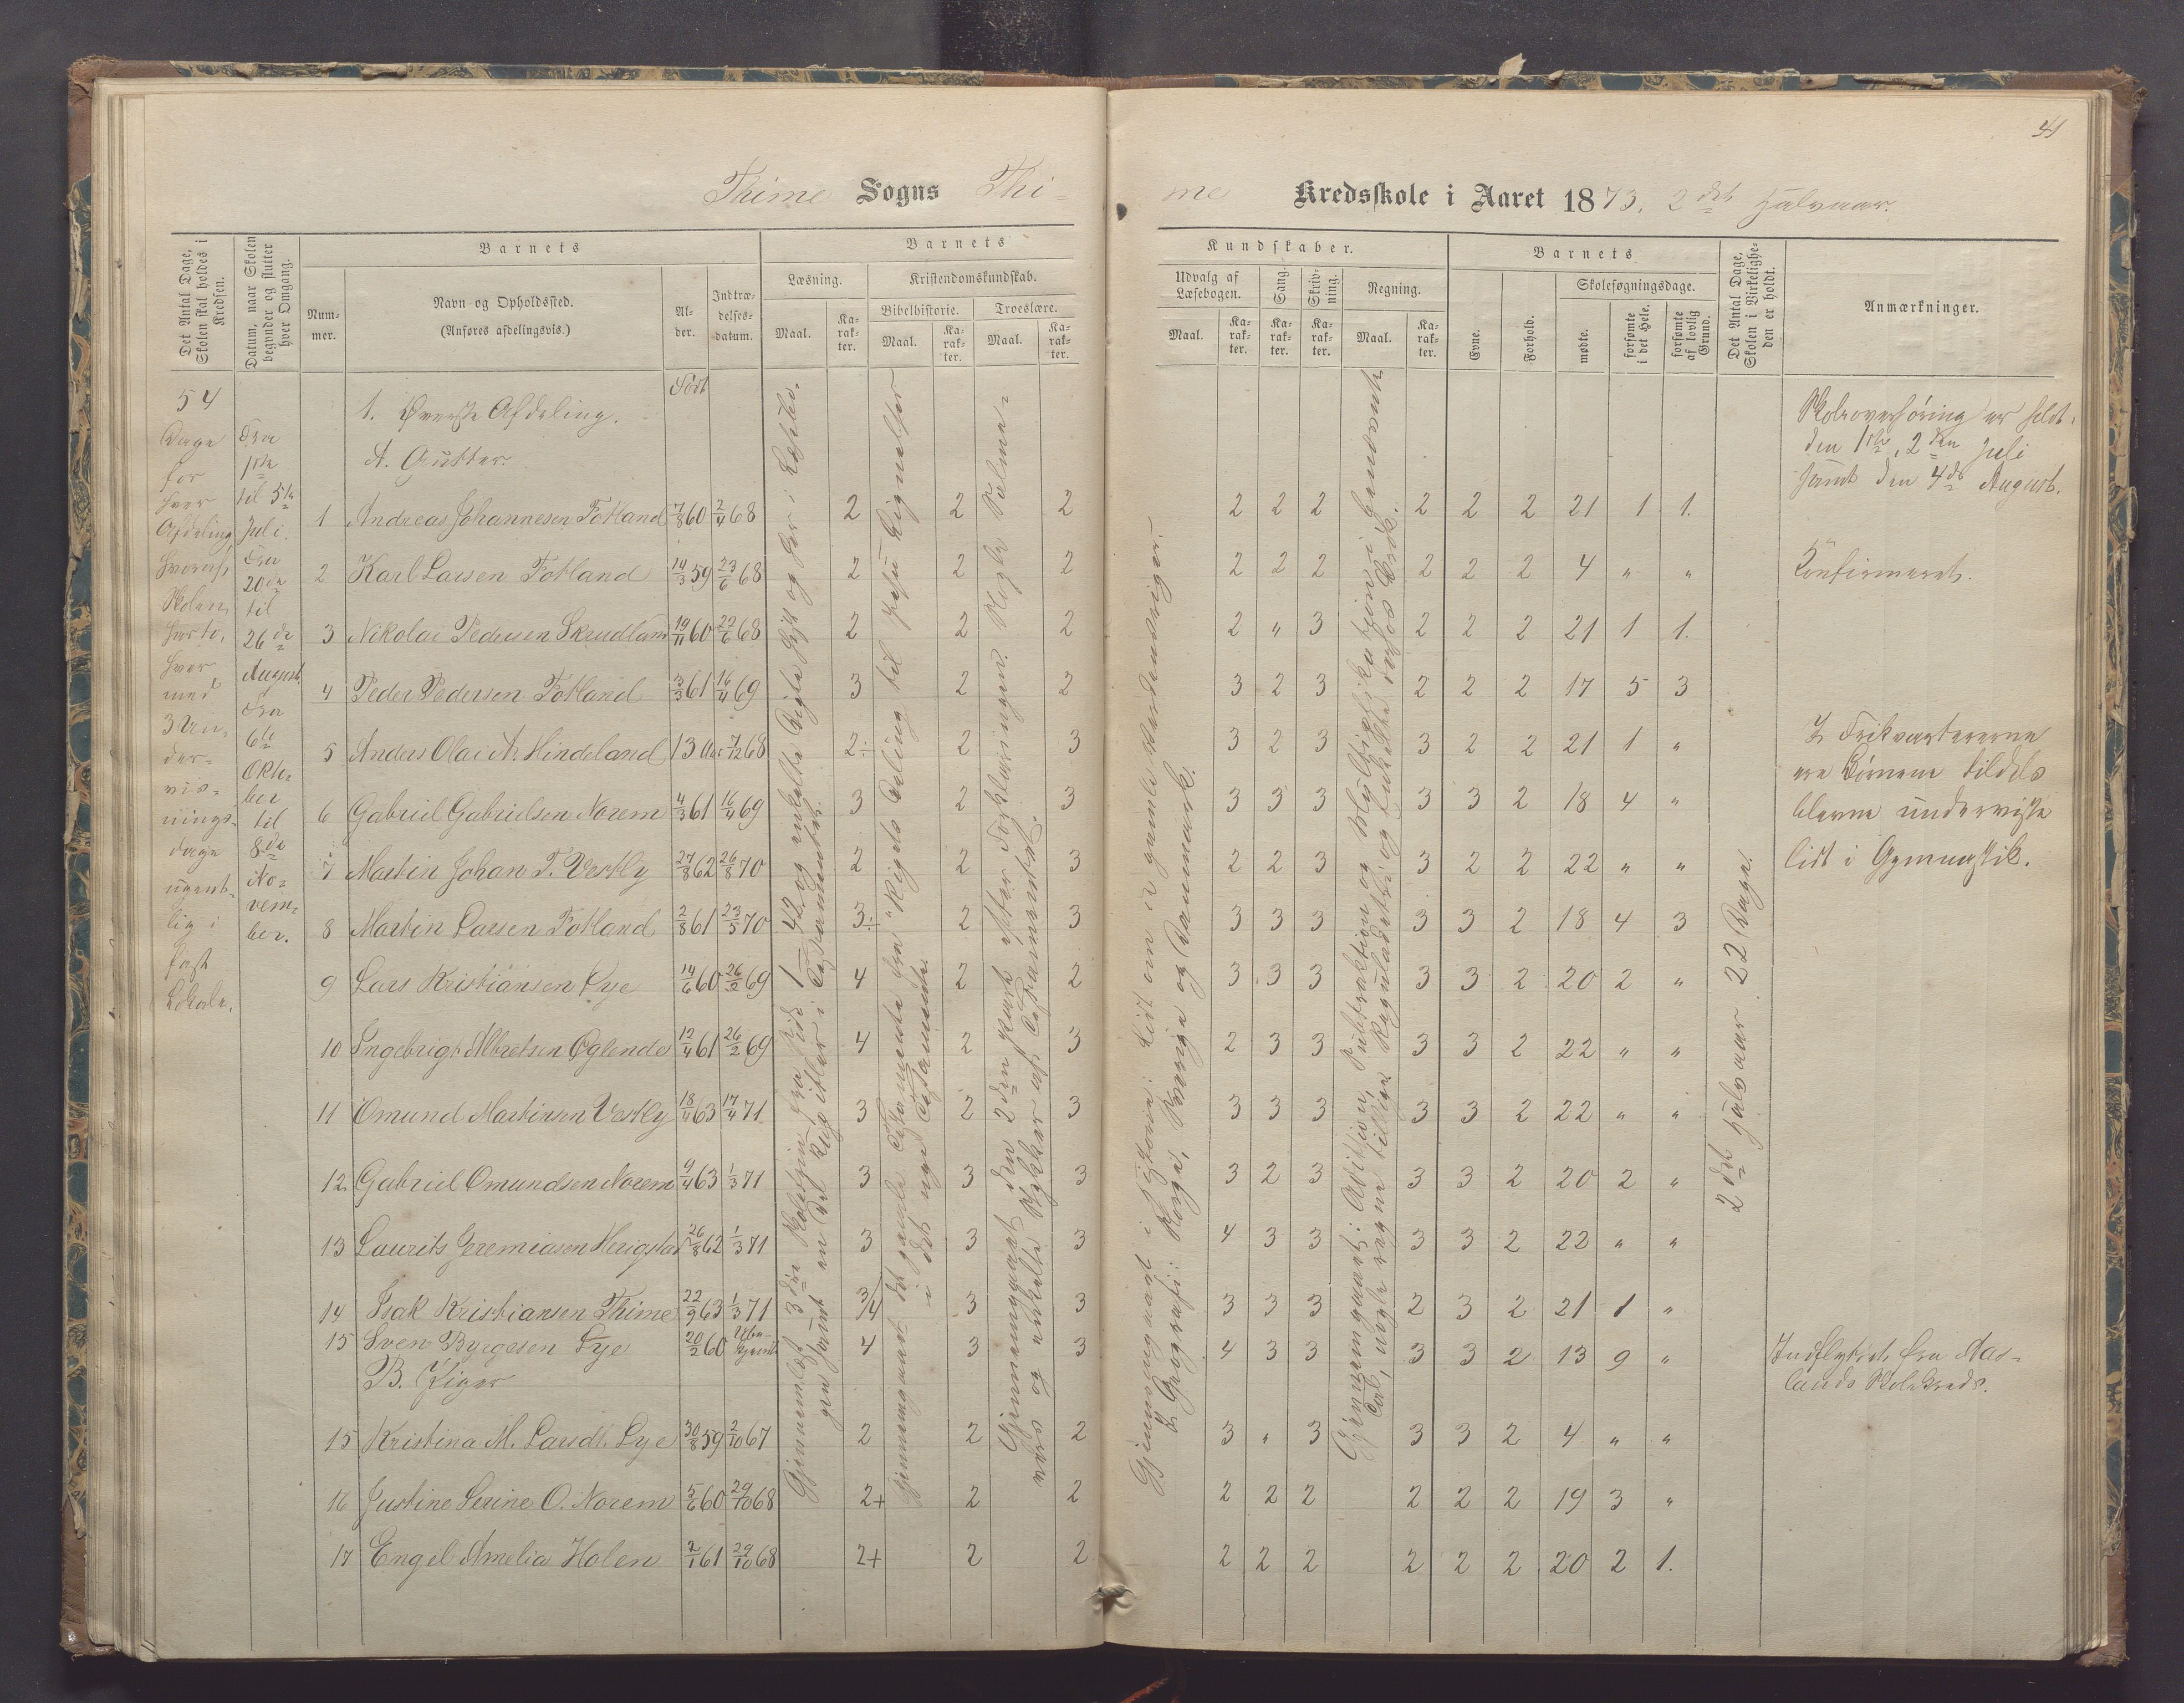 41
Thime Sogns Thime Kredsskole i Aaret 1873. 2det Halvaar.
Det Antal Dage, Skolen skal holdes i Kredsen.
Datum, naar Skolen begynder og slutter hver Omgang.
Barnets
Nummer.
Navn og Opholdssted.
(Anføres afdelingsvis.)
Alder.
Indtrædelsesdatum.
Barnets
Læsning.
Maal.
Karakter.
Kristendomskundskab.
Bibelhistorie.
Maal.
Karakter.
Troeslære.
Maal.
Karakter.
Kundskaber.
Udvalg af Læsebogen.
Maal.
Karakter.
Sang.
Karakter.
Skrivning.
Karakter.
Regning.
Maal.
Karakter.
Barnets
Evne.
Forhold.
Skolesøgningsdage.
mødte.
forsømte i det Hele.
forsømte af lovlig Grund.
Det Antal Dage, Skolen i Virkeligheden er holdt.
Anmærkninger.
54
Dage
for
hver
Afdeling,
hvoraf
Skolen
har to,
hver
med
3 Un-
der-
vis-
nings-
dage
ugent-
lig i
fast
Lokale.
Fra
1ste
til 5te
Juli.
Fra
20de
til
26de
August.
Fra
6te
Okto-
ber
til
8de
No-
vem-
ber.
Født
1. Øverste Afdeling.
A. Gutter.
1 Andreas Johannesen Fotland 7/8 60 2/4 68 2 2 2 2 2 2 2 2 2 21 1 1.
2 Karl Larsen Fotland 14/3 59 23/6 68 2 2 2 2 2 2 2 2 2 4 " "
3 Nikolai Pedersen Skrudland 19/11 60 22/6 68 2 2 2 2 " 3 2 2 2 21 1 1.
4 Peder Pedersen Fotland 13/3 61 16/4 69 3 2 2 3 2 3 2 2 2 17 5 3
5 Anders Olai A. Hindeland 13 Aar 7/12 68 2÷ 2 3 3 2 3 3 2 2 21 1 "
6 Gabriel Gabrielsen Norem 4/3 61 16/4 69 3 2 3 3 3 3 3 3 2 18 4 "
7 Martin Johan T. Vestly 27/8 62 26/8 70 2 2 3 2 2 3 3 2 2 22 " "
8 Martin Larsen Fotland 2/8 61 23/5 70 3÷ 2 3 3 3 3 3 3 2 18 4 3
9 Lars Kristiansen Lye 14/6 60 26/2 69 4 2 2 3 3 3 3 3 2 20 2 "
10 Ingebrigt Albretsen Øglende 12/4 61 26/2 69 4 2 3 2 3 3 3 3 2 22 " "
11 Omund Martinsen Vestly 18/4 63 17/4 71 3 2 3 3 3 3 3 3 2 22 " "
12 Gabriel Omundsen Norem 9/4 63 1/3 71 3 3 3 3 2 3 3 3 2 20 2 "
13 Laurits Jeremiasen Herigstad 26/8 62 1/3 71 3 3 3 4 3 3 3 3 2 22 " "
14 Isak Kristiansen Thime 22/9 63 1/3 71 3/4 3 3 3 3 3 2 3 2 21 1 "
15 Sven Byrgesen Lye 20/2 60 Ube-kjendt 4 3 3 4 3 3 3 3 2 13 9 "
B. Piger
15 Kristina M. Larsdt. Lye 30/8 59 2/10 67 2 2 2 3 " 3 3 3 2 4 " "
16 Justine Serine O. Norem 5/6 60 29/10 68 2+ 2 2 2 2 2 2 2 2 19 3 "
17 Engel Amelia Holen 2/1 61 29/10 68 2+ 2 2 2 2 2 2 2 2 20 2 1.
Gjennemgaaet det gamle Testamente fra "Rigets Deling" til Jesu Lignelser
i det nye Testamente.
Gjennemgaaet den 2den Part efter Forklaringen. Nogle Salme-
vers og enkelte Stykker af Testamentet.
Gjennemgaaet i Historie: Lidt om de gamle Nordmænd
I Geografi: Norge, Sverige og Danmark.
Gjennemgaaet: Addition, Subtraktion og Multiplikation i benævnte
Tal, nogle regne tillige Reguladetri
2det Halvaar 22 Dage.
Skoleoverhøring er holdt
den 1ste, 2den Juli
samt den 4de August.
Konfirmeret.
I Frikvartererne
ere Børnene tildels
blevne underviste
lidt i Gymnastik.
Indflyttet fra Aas-
lands Skolekreds.